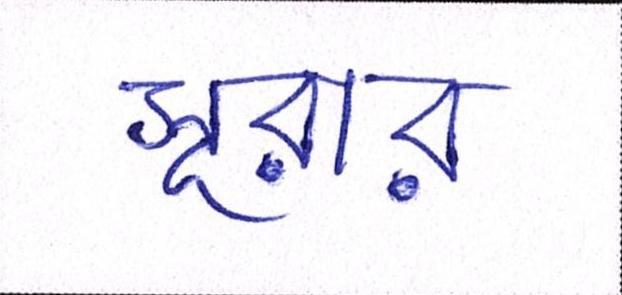 সূরার